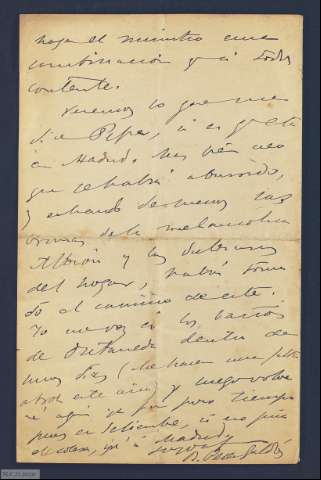 haga el ministro una
combinación y á todos
contente.
Veremos lo que me
dice Pepe, si es q está
en Madrid. Mas bien creo
que se habrá aburrido,
y echando de menos las
brumas de la melancolica
Albión y las dulzuras
del hogar, habrá toma
do el camino de este.
Yo me voy á los baños
de Ontaneda dentro de
unos dias (me hacen una falta
atroz este año) y luego volve
ré aquí por poco tiempo
pues en Setiembre, si no pasa
el colera, iré á Madrid
B. Perez Galdós